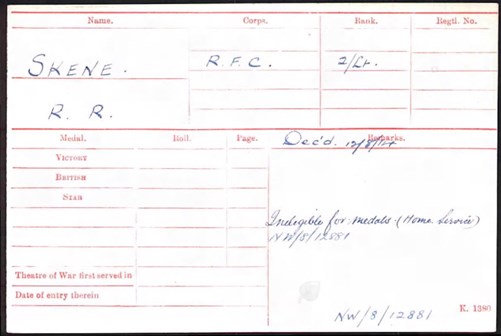 Name. Corps. Rank. Regtl. No.
SKENE. R. F. C. 2/Lt.
R. R.
Medal. Roll. Page. Remarks.
Dec'd. 12/8/14
VICTORY
BRITISH
STAR
Ineligible for medals (Home Service)
NW/8/12881
Theatre of War first served in
Date of entry therein
K. 1380
NW/8/12881